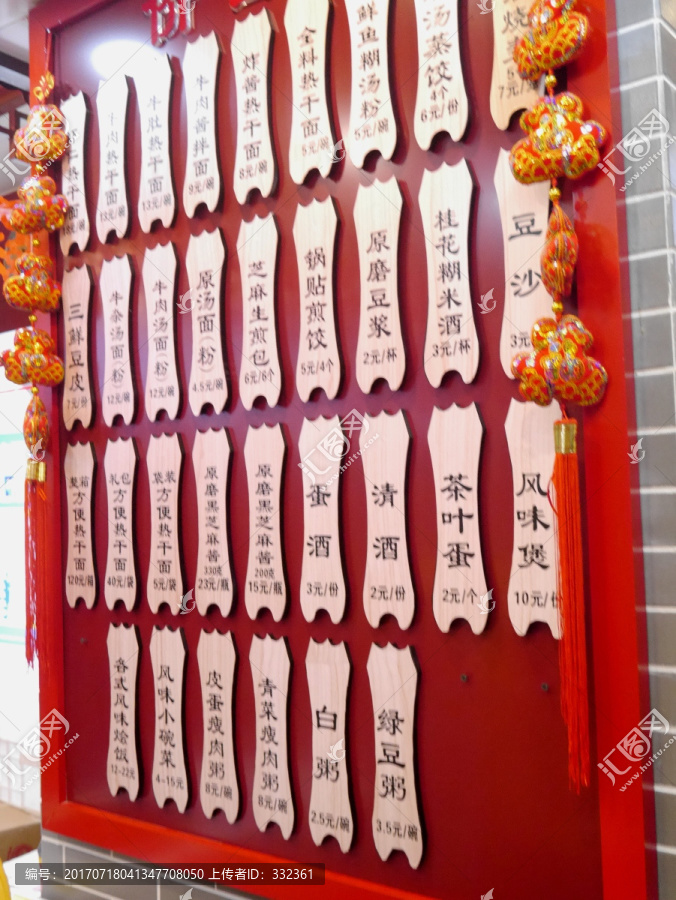 牛肉热干面
13元/碗
牛肚热干面
13元/碗
牛肉酱拌面
9元/碗
炸酱热干面
8元/碗
全料热干面
5元/碗
鲜鱼糊汤粉
5元/碗
汤蒸饺
4个
6元/份
烧
7元/
三鲜豆皮
7元/份
牛杂汤面(粉)
12元/碗
牛肉汤面(粉)
12元/碗
原汤面(粉)
4.5元/碗
芝麻生煎包
6元/6个
锅贴煎饺
5元/4个
原磨豆浆
2元/杯
桂花糊米酒
3元/杯
豆沙
3元
整箱方便热干面
120元/箱
礼包方便热干面
40元/袋
袋装方便热干面
5元/袋
原磨黑芝麻酱
330克
23元/瓶
原磨黑芝麻酱
200克
15元/瓶
蛋酒
3元/份
清酒
2元/份
茶叶蛋
2元/个
风味煲
10元/份
各式风味烩饭
12-22元
风味小碗菜
4-15元
皮蛋瘦肉粥
8元/碗
青菜瘦肉粥
8元/碗
白粥
2.5元/碗
绿豆粥
3.5元/碗
编号:20170718041347708050 上传者ID:332361